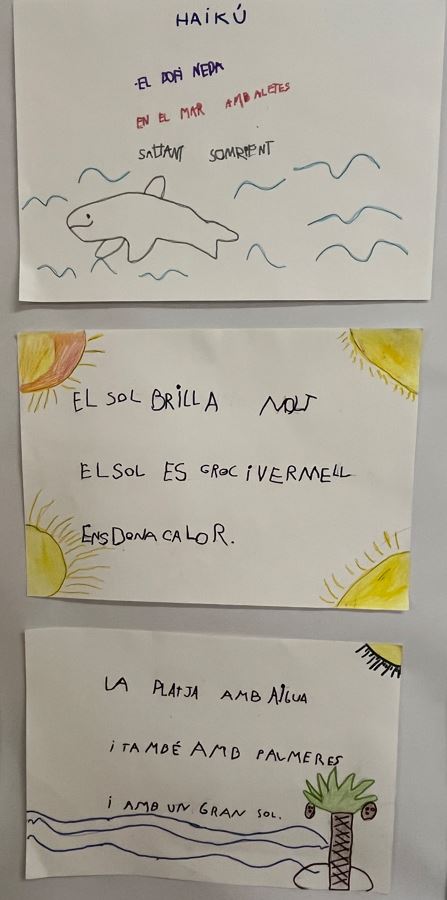 HAIKÚ
·EL DOFI NEDA
EN EL MAR AMB ALETES
SALTANT SOMRIENT
EL SOL BRILLA MOLT
EL SOL ES GROC i VERMELL
ENS DONA CALOR.
LA PLATJA AMB AiGUA
i TAMBÉ AMB PALMERES
i AMB UN GRAN SOL.